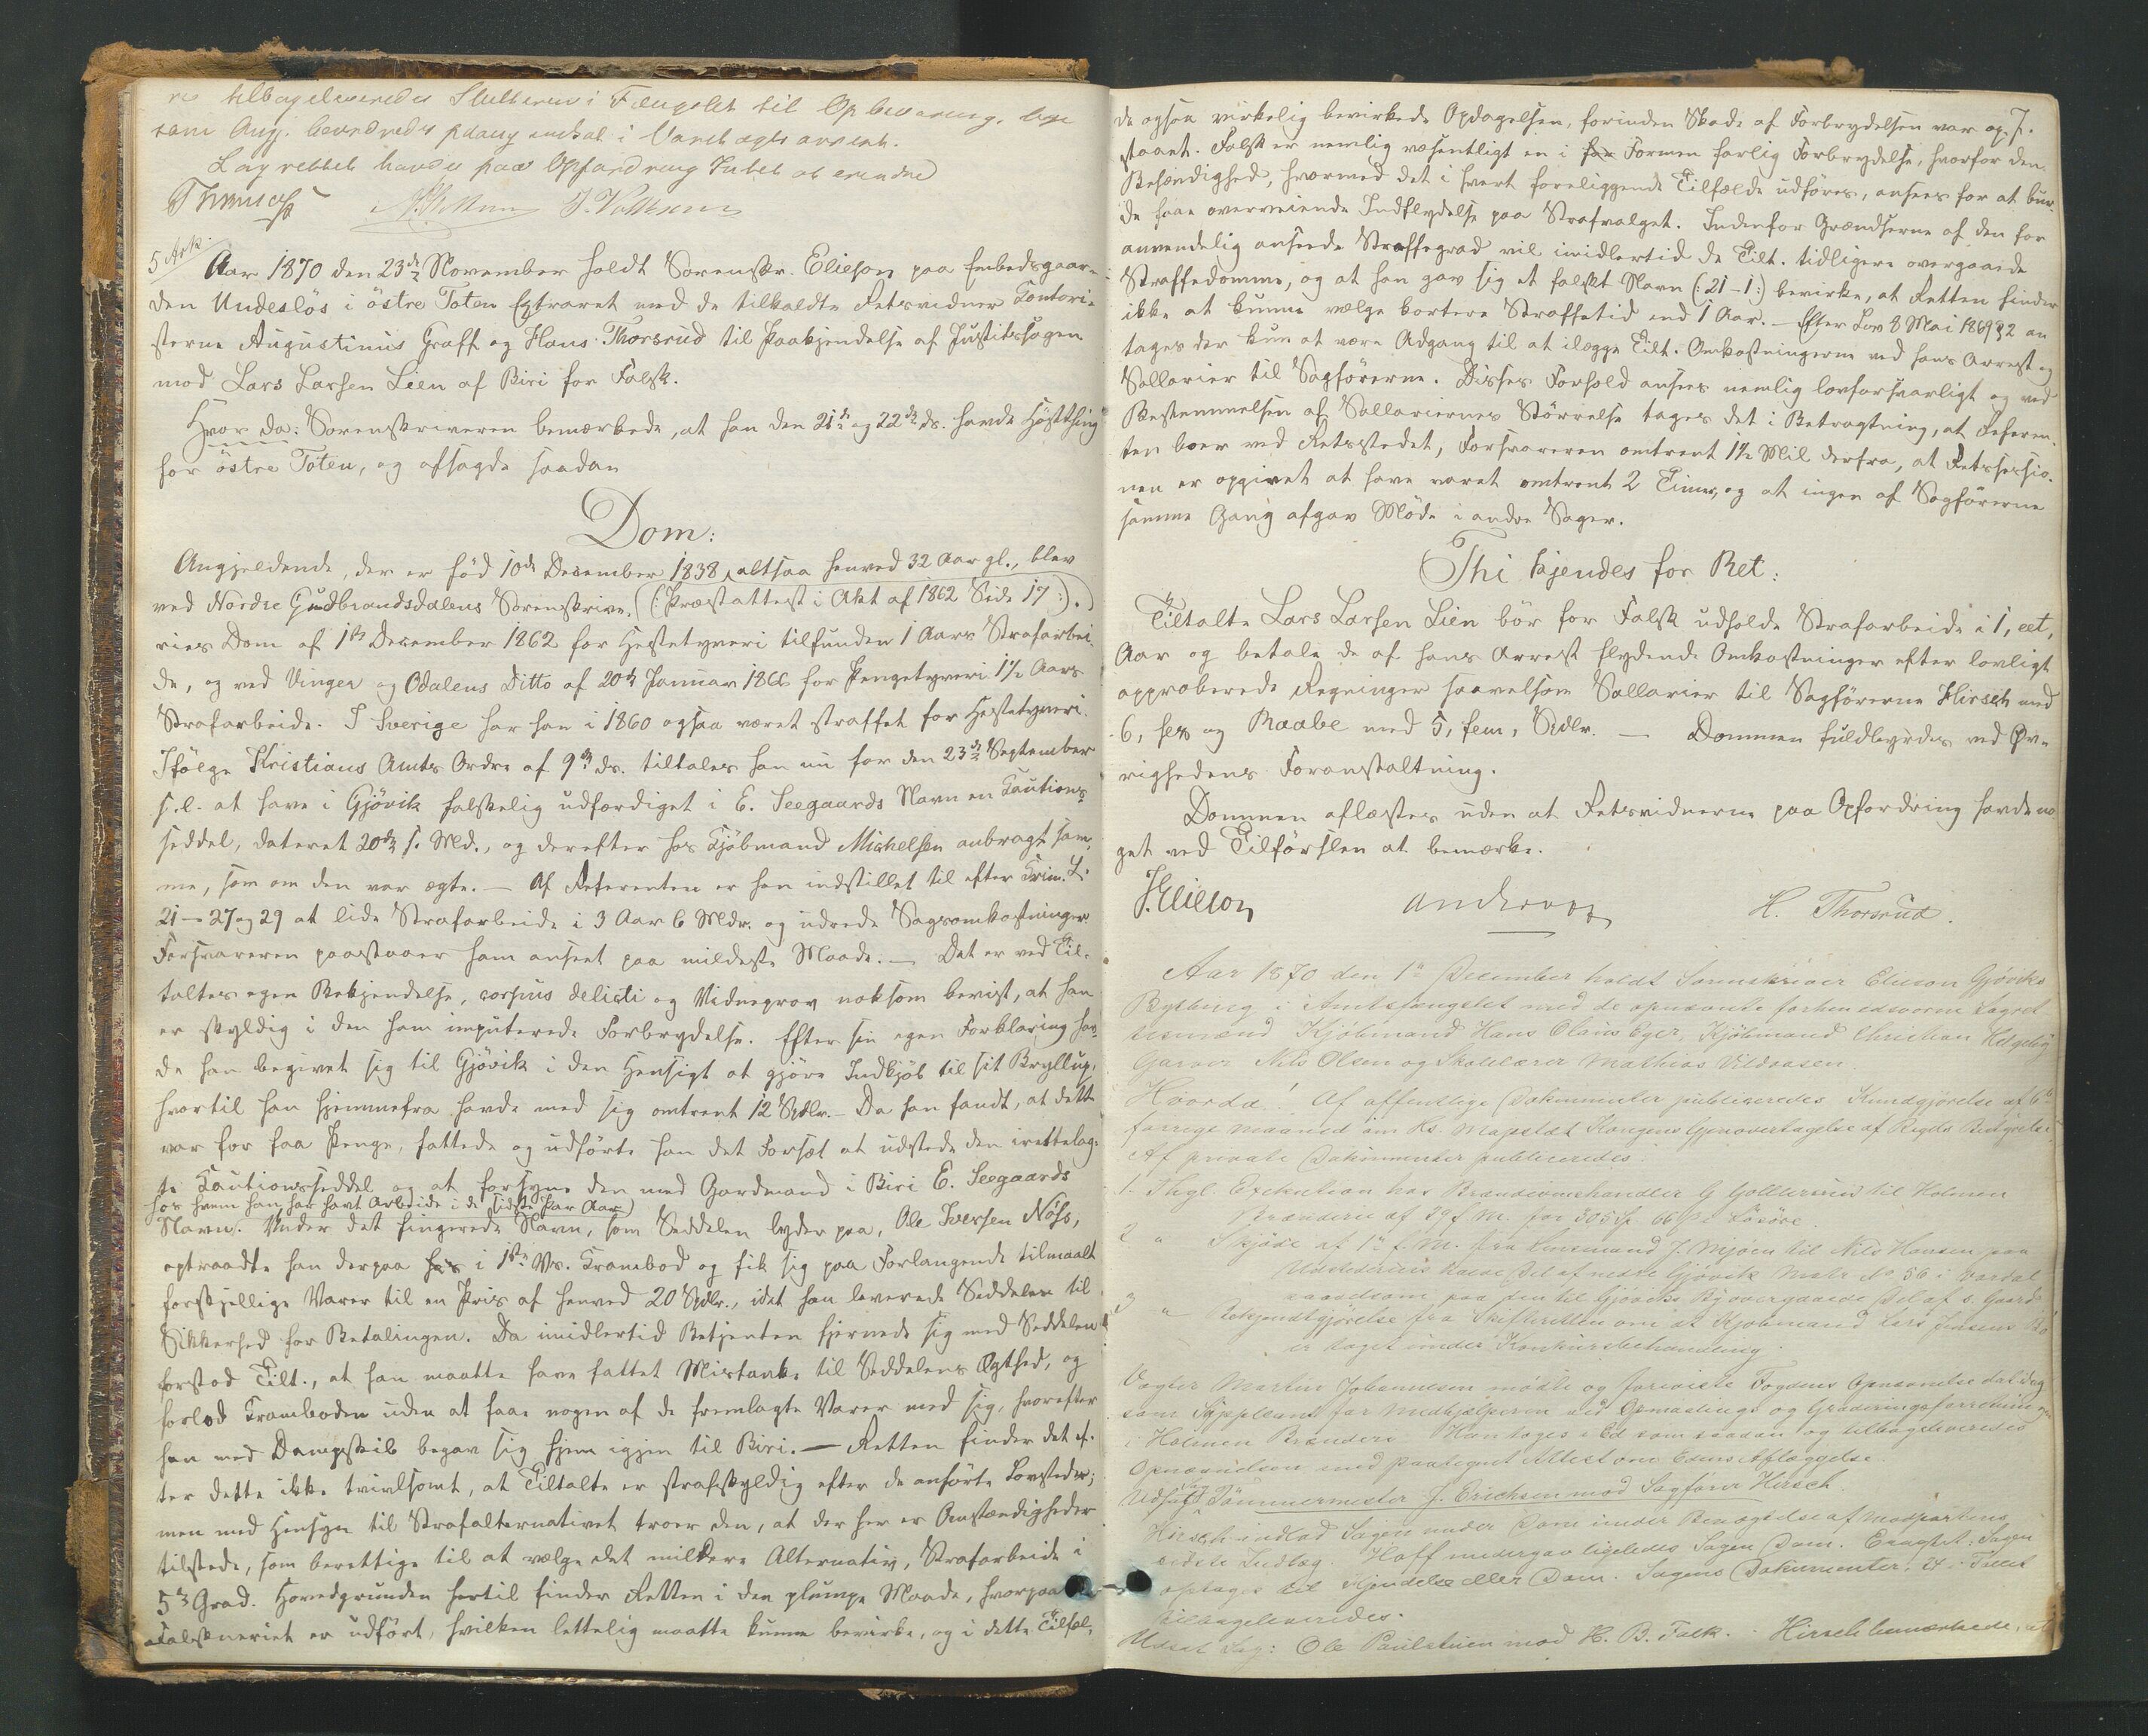 tilbageleveredes Slutteren i Fængslet til Opbevaring.
som Ang. beordredes indsat i Varetægts arrest.
Lagrettet havde paa Opfordring Intet at erindre
5 Ark.
Aar 1870 den 23de November holdt Sorenskr. Elieson paa Embedsgaar-
den Undeslös i östre Toten Extraret med de tilkaldte Retsvidner Kontori-
sterne Augustinus Graff og Hans Thorsrud til Paakjendelse af Justitssagen
mod Lars Larsen Lien af Biri for Falsk.
Hvor da: Sorenskriveren bemærkede, at han den 21de og 22de ds. havde Höstthing
for östre Toten, og afsagde saadan
Dom:
Angjeldende, der er fød 10de December 1838, altsaa henved 32 Aar gl., blev
ved Nordre Gudbrandsdalens Sorenskrive- (: Præstattest i Akt af 1862 Side 17 :).
ries Dom af 1ste December 1862 for Hestetyveri tilfunden 1 Aars Strafarbei-
de, og ved Vinger og Odalens Ditto af 20de Januar 1866 for Pengetyveri 1½ Aars
Strafarbeide. I Sverige har han i 1860 ogsaa været straffet for Hestetyveri.
Ifölge Kristians Amts Ordre af 9de ds. tiltales han nu for den 23de September
s.l. at have i Gjövik falskelig udfærdiget i E. Seegaards Navn en Kautions-
seddel, dateret 20de s. Md., og derefter hos Kjöbmand Michelsen anbragt sam-
me, som om den var ægte. — Af Referenten er han indstillet til efter Krim. L.
21–27 og 29 at lide Strafarbeide i 3 Aar 6 Mdr. og udrede Sagsomkostninger.
Forsvareren paastaaer ham anseet paa mildeste Maade. — Det er ved Til-
taltes egen Bekjendelse, corpus delicti og Vidneprov noksom bevist, at han
er skyldig i den ham imputerede Forbrydelse. Efter sin egen Forklaring hav-
de han begivet sig til Gjövik i den Hensigt at gjöre Indkjöb til sit Bryllup,
hvortil han hjemmefra havde med sig omtrent 12 Spdlr. — Da han fandt, at dette
var for faa Penge, fattede og udførte han det Forsæt at udstede den irettelag-
te Kautionsseddel og at forsyne den med Gardmand i Biri E. Seegaards
hos hvem han har havt Arbeide i de sidste par Aar)
Navn. Under det fingerede Navn, som Seddelen lyder paa, Ole Iversen Nöss,
optraadte han derpaa hos i 1ste Vs. Krambod og fik sig paa Forlangende tilmaalt
forskjellige Varer til en Pris af henved 20 Spdlr., idet han leverede Seddelen til
Sikkerhed for Betalingen. Da imidlertid Betjenten fjernede sig med Seddelen
forstod Tilt., at han maatte have fattet Mistanke til Seddelens Ægthed, og
forlod Kramboden uden at faae nogen af de fremlagte Varer med sig, hvorefter
han med Dampskib begav sig hjem igjen til Biri. — Retten finder det ef-
ter dette ikke tvivlsomt, at Tiltalte er strafskyldig efter de anförte Lovsteder;
men med Hensyn til Strafalternativet troer den, at der her er Omstændigheder
tilstede, som berettige til at vælge det mildere Alternativ, Strafarbeide i
5te Grad. Hovedgrunden hertil finder Retten i den plumpe Maade, hvorpaa
Falskneriet er udført, hvilken lettelig maatte kunne bevirke, og i dette Tilfæl-
de ogsaa virkelig bevirkede Opdagelsen, forinden Skade af Forbrydelsen var op- 7.
staaet. Falsk er nemlig væsentligt en i for Formen farlig Forbrydelse, hvorfor den
Behændighed, hvormed det i hvert foreliggende Tilfælde udføres, ansees for at bur-
de faae overveiende Indflydelse paa Strafvalget. Indenfor Grændserne af den for
anvendelig anseede Straffegrad vil imidlertid de Tilt. tidligere overgaaede
Straffedomme, og at han gav sig et falskt Navn (: 21–1 :) bevirke, at Retten finder
ikke at kunne vælge kortere Straffetid end 1 Aar. — Efter Lov 8 Mai 1869 § 2 an
tages der kun at være Adgang til at ilægge Tilt. Omkostningerne ved hans Arrest og
Sallarier til Sagförerne. Disses Forhold ansees nemlig lovforsvarligt og ved
Bestemmelsen af Sallariernes Störrelse tages det i Betragtning, at Referen-
ten boer ved Retsstedet, Forsvareren omtrent 1½ Mil derfra, at Retssessio-
nen er opgivet at have varet omtrent 2 Timer, og at ingen af Sagförerne
samme Gang afgav Möde i andre Sager.
Thi kjendes for Ret:
Tiltalte Lars Larsen Lien bör for Falsk udholde Strafarbeide i 1, eet,
Aar og betale de af hans Arrest flydende Omkostninger efter lovligt
approberede Regninger saavelsom Sallarier til Sagförerne Hirsch med
6, sex og Raabe med 5, fem, Spdlr. — Dommen fuldbyrdes ved Øv-
righedens Foranstaltning.
Dommen oplæstes uden at Retsvidnerne paa Opfordring havde no
get ved Tilförslen at bemærke.
J. Elieson H. Thorsrud.
Aar 1870 den 1ste December holdt Sorenskriver Elieson Gjöviks
Bything i Amtsfængslet med de opnævnte forhen edsvorne Lagret
tesmænd Kjöbmand Hans Claus Eger, Kjöbmand Christian Helgeby
Garver Nils Olsen og Skolelærer Mathias Vildaasen.
Hvorda! Af offentlige Dokumenter publiceredes Kundgjörelse af 6te
forrige Maaned om Hs. Majestæt Kongens Gjenovertagelse af Rigets Bestyrelse.
Af private Dokumenter publiceredes:
1. Thgl. Exekution hos Brændevinshandler G til Holmen
Brænderi af 29 f. M. for 305 Sp. 66 s. i Lösöre.
2 " Skjöde af 1ste f. M. fra Lensmand J. Mjöen til Nils Hansen paa
Del af nedre Gjövik Matr. No 56 i Vardal
paa den til Gjöviks By overgaaede Del af s. Gaard
3 " Bekjendtgjörelse fra Skifteretten om at Kjöbmand Lars Jensens Bo
er taget under Konkursbehandling.
Vogter Martin Johannesen mødte og foreviste Fogdens Opnævnelse
som Suppleant for Medhjælperen ved Opmaalings og Graderingsforretninger
i Holmen Brænderi. Han toges i Ed som saadan og tilbageleveredes
Opnævnelsen med paategnet Attest om Edens Aflæggelse.
Udsat Sag Tömmermester J. Erichsen mod Sagförer Hirsch.
Hirsch indlod Sagen under Dom under Benægtelse af Modpartens
sidste Indlæg. Hoff nedergav ligeledes Sagen Dom. Eragtet: Sagen
optages til Kjendelse eller Dom. Sagens Dokumenter,
tilbageleveredes.
Udsat Sag: Ole Paulstuen mod H. B. Falk. Hirsch bemærkede, at